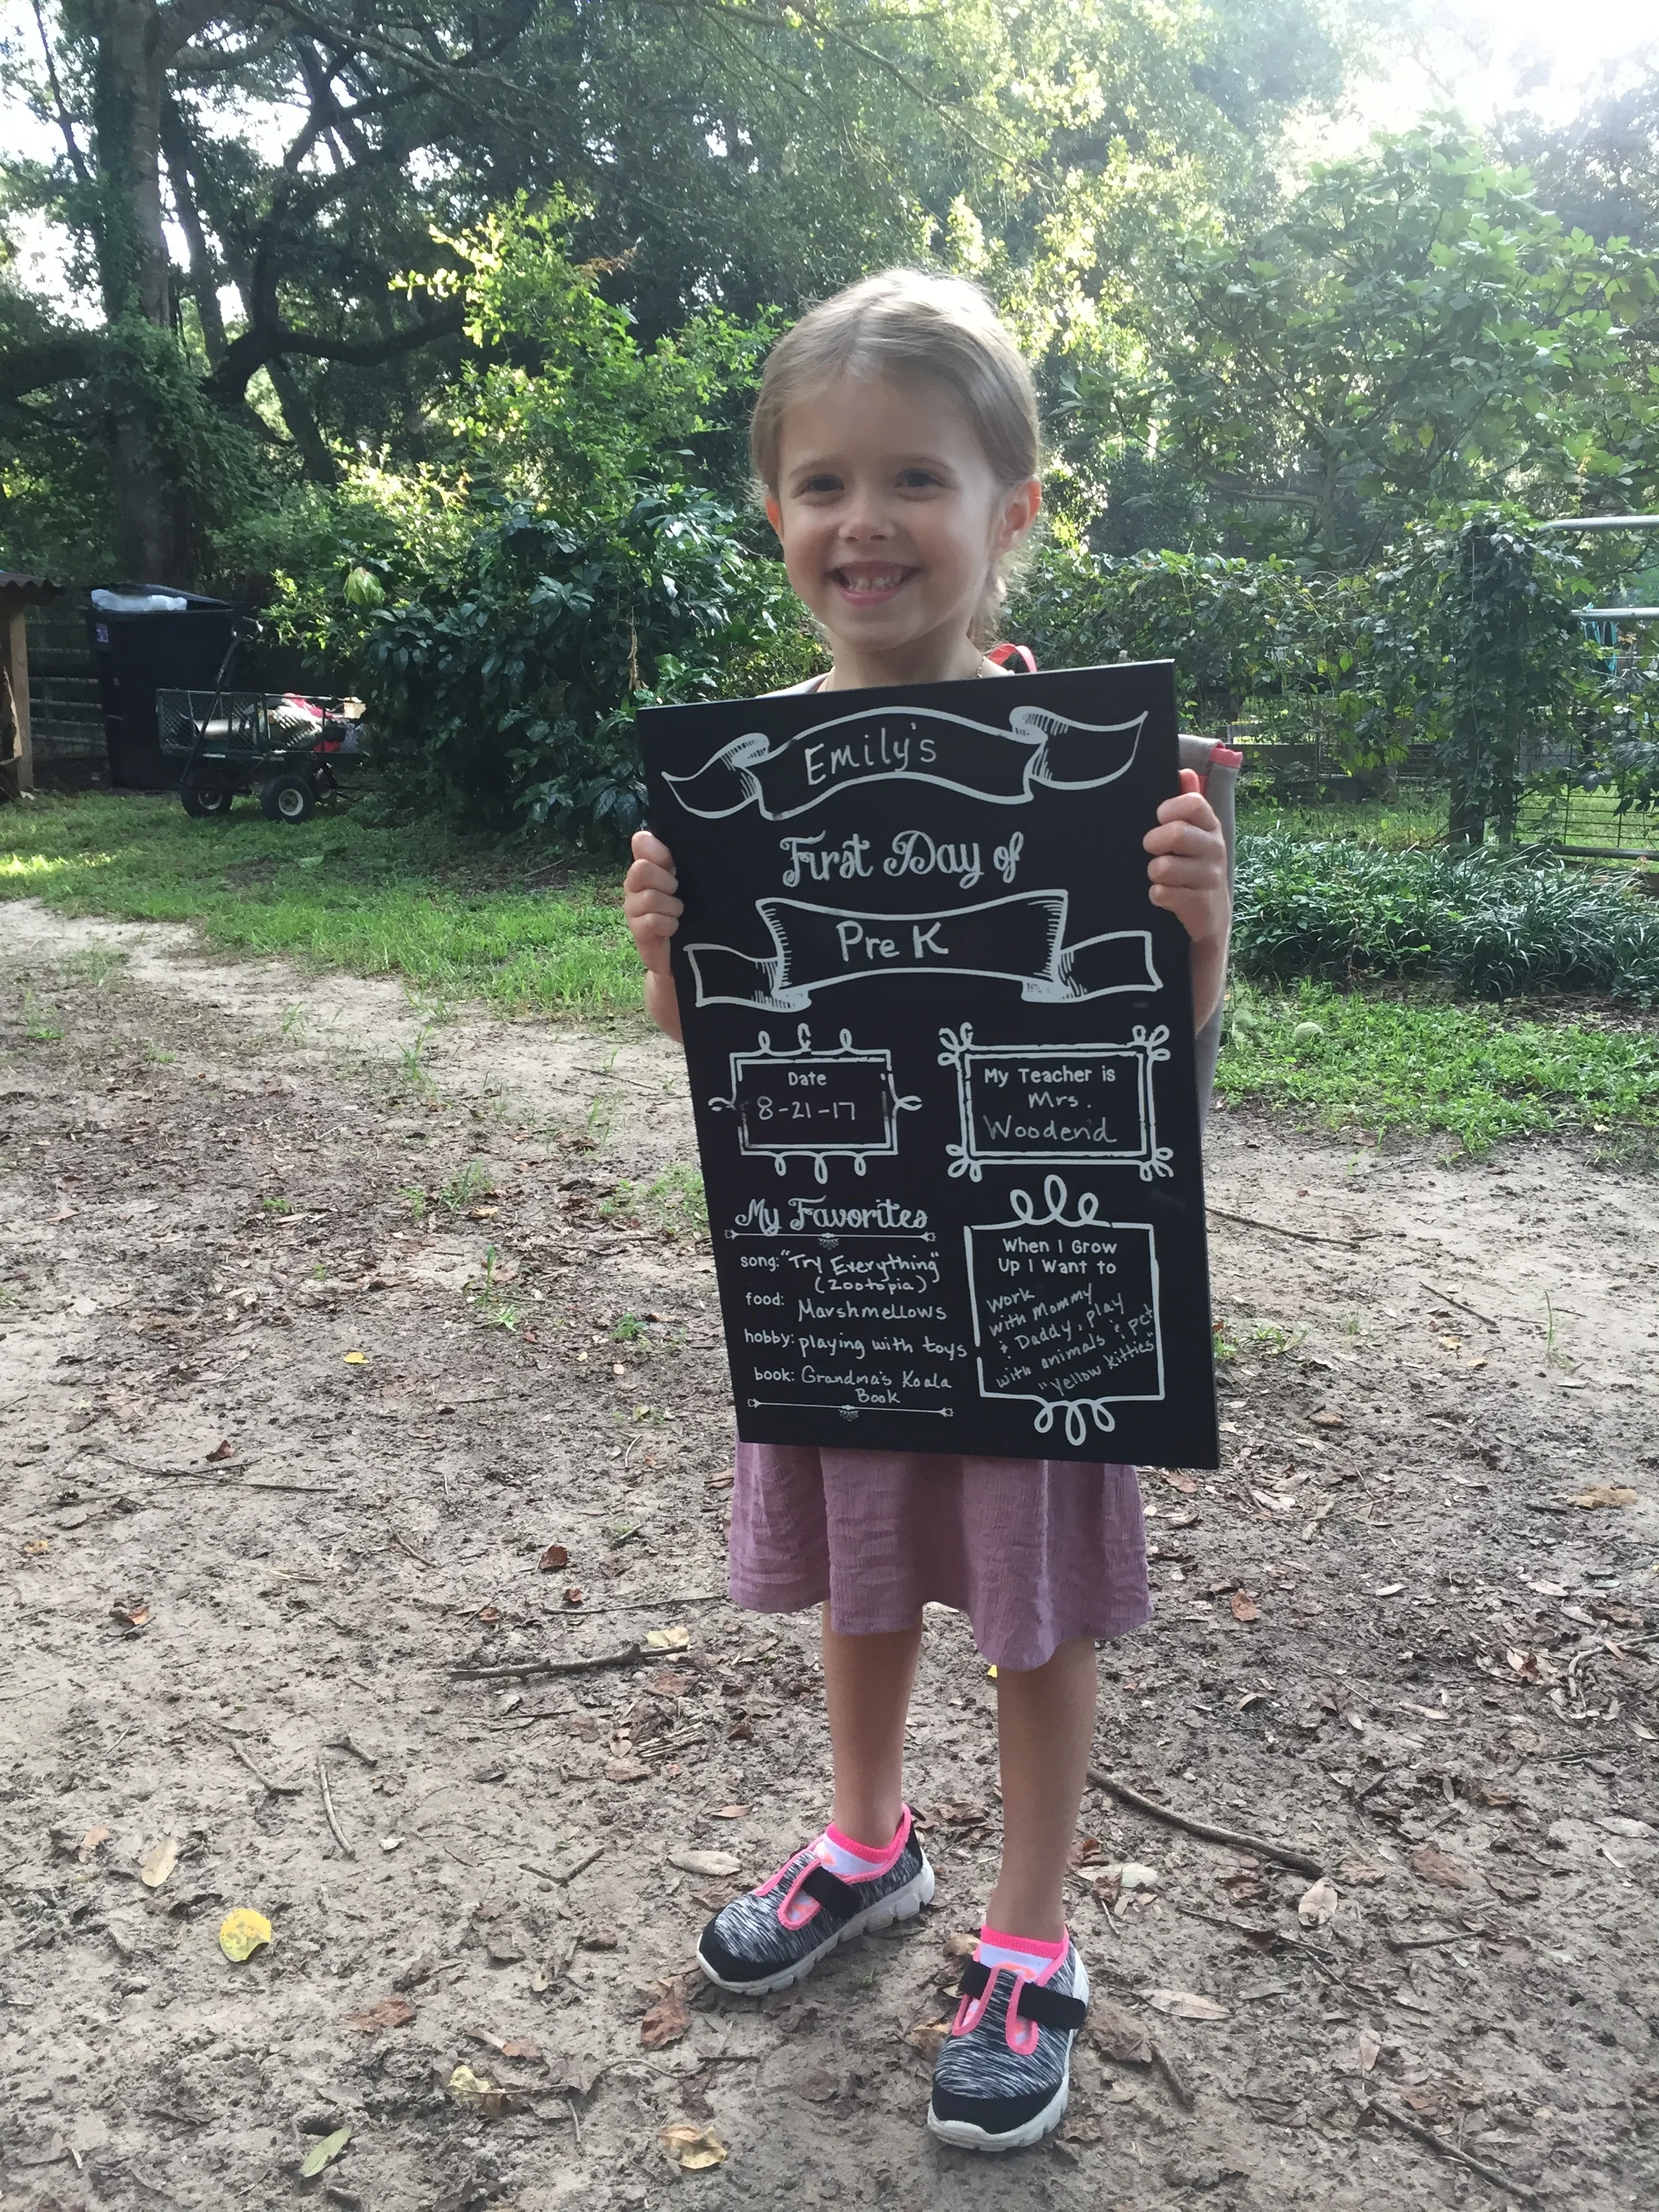 Emily's
First Day of
Pre K
Date
8-21-17
My Teacher is
Mrs.
Woodend
My Favorites
song: "Try Everything"
(Zootopia)
food: Marshmellows
hobby: playing with toys
book: Grandma's Koala
Book
When I Grow
Up I Want to
work
with Mommy
& Daddy, play
with animals & pet
"Yellow Kitties"